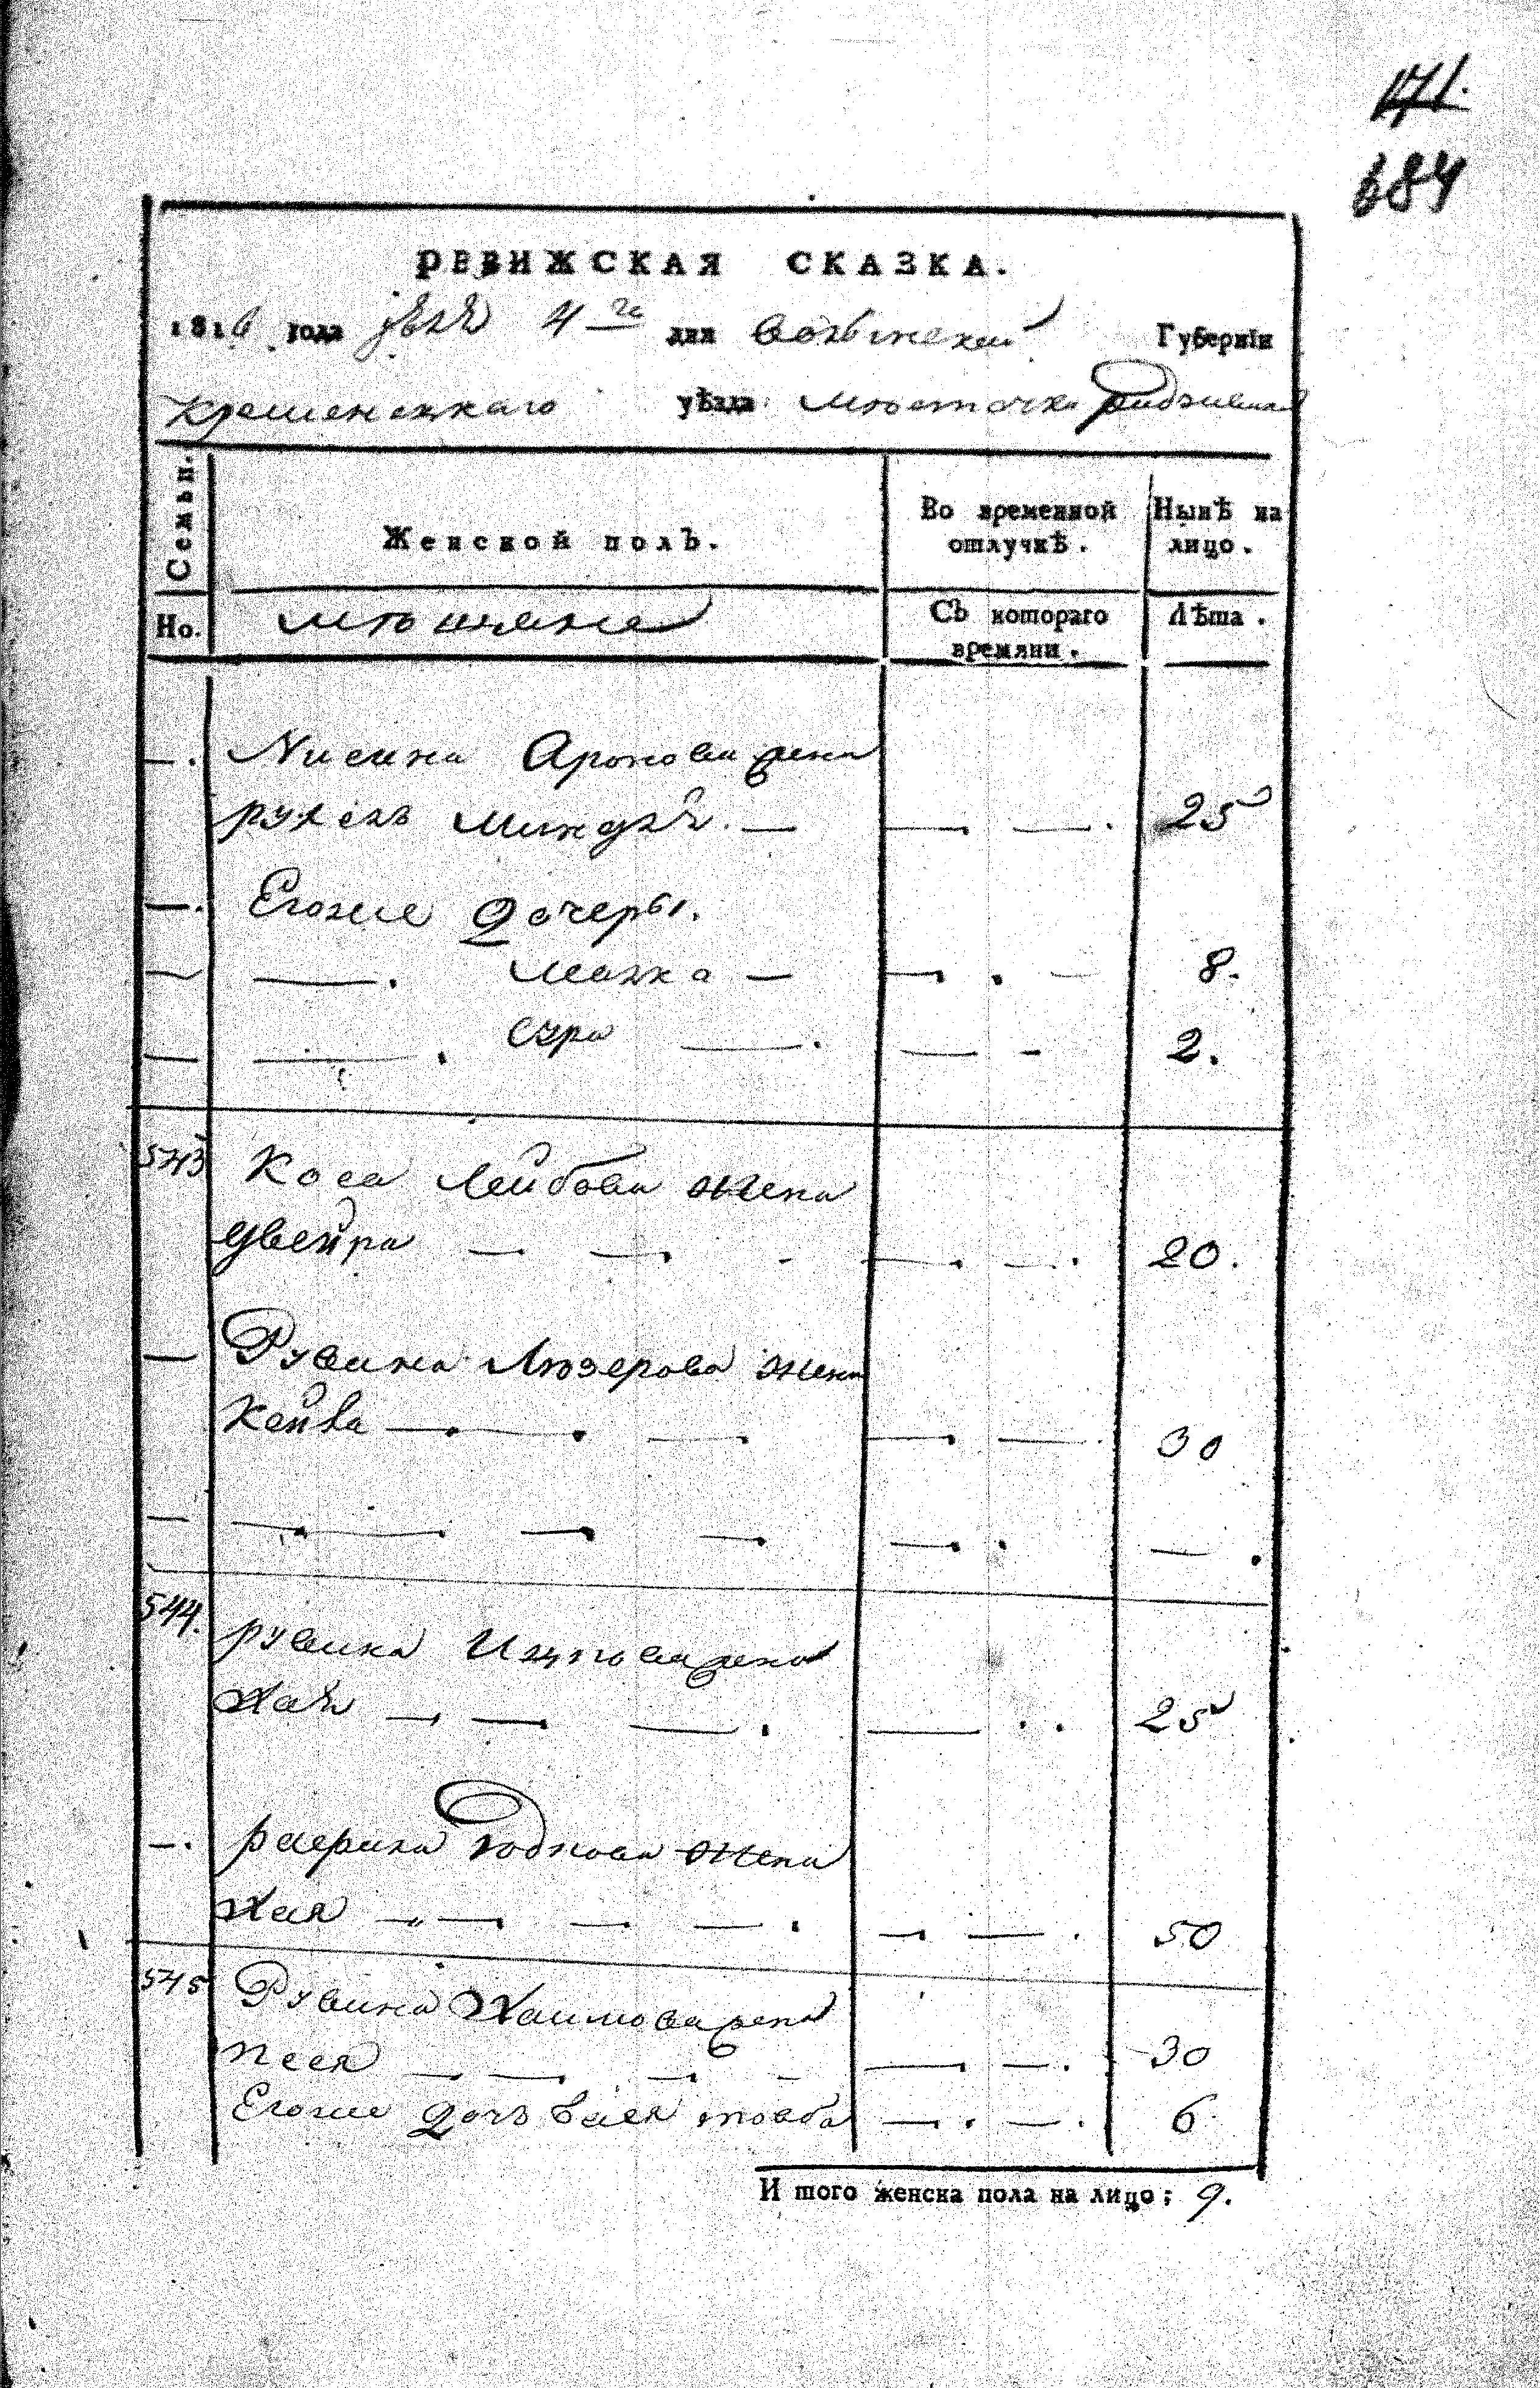 171.
684
РЕВИЖСКАЯ СКАЗКА.
1816 года 4 го дня Волынской Губернiи
Кременецкаго уѣзда мѣстечка Радзивил
Семьи.
Женской полъ.
Во временной отлучкѣ.
Нынѣ на лицо.
Но.
мѣщане
Съ котораго времяни.
Лѣта.
—. Нисина Аронова жена
рухель Миндля. — — —. 25
—. Егоже дочеры.
— —. малка — —. — 8.
— —. Сура —. — - 2.
543 Коса Лейбова жена
двейра — —. - —. —. 20.
— Рувина Лейзерова жена
Кейла —. —. —. —. —. 30
— —. —. —. —. —. . —.
544. рувина Ицкова жена
Хая —. —. —. — . . 25
—. жена
Хая —„—. —. —. —. —. 50
545 Рувина Хаимова жена
песя —. —. —. - —. —. 30
Егоже дочь бася товба —. . —. 6.
И того женска пола на лицо; 9.